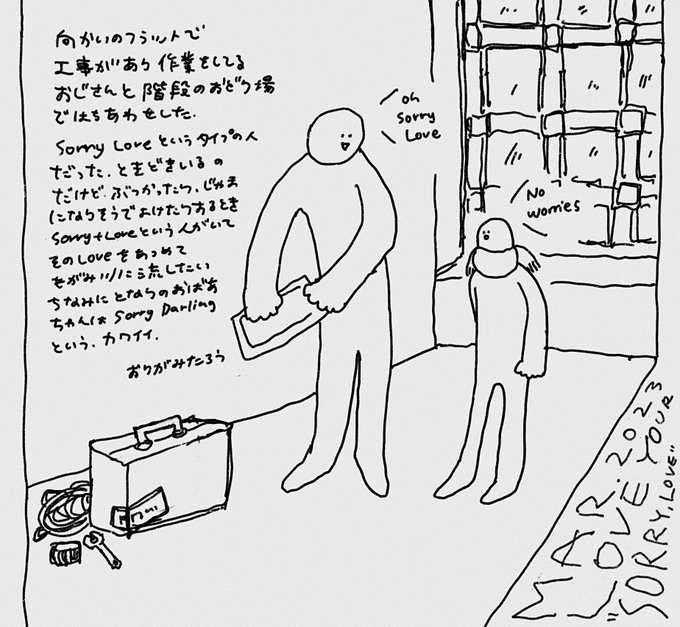 向かいのフラットで
工事があり作業をしてる
おじさんと階段のおどり場
ではちあわせした.
Sorry Loveというタイプの人
だった. ときどきいるの
だけど. ぶつかったり. じゃま
になりそうでよけたりするとき
Sorry+Loveという人がいて
そのLoveをあつめて
せがみ川に流したい
ちなみにとなりのおばあ
ちゃんはSorry Darling
という. カワイイ.
おりがみたろう
oh
Sorry
Love
No
worries
MAR. 2023
LOVE YOUR
"SORRY, LOVE"